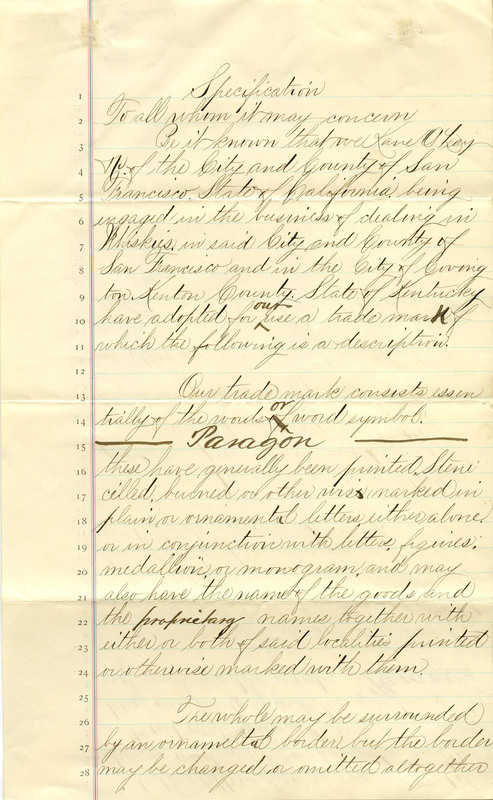 Specification
1
To all whom it may concern
2
Be it known that we Kane O'Leary
3
& Co. of the City and County of San
4
Francisco. State of California. being
5
engaged in the business of dealing in
6
Whiskies, in said City and County of
7
San Francisco and in the City of Coving
8
ton. Kenton County State of Kentucky
9
have adopted for our use a trade mark of
10
which the following is a description.
11
12
Our trade mark consists essen
13
tially of the words or word symbol.
14
Paragon
15
these have generally been printed. Sten
16
celled, burned or other wise marked in
17
plain or ornamental letters, either alone.
18
or in conjunction with letters. figures.
19
medallion. or monogram. and may
20
also have the name of the goods and
21
the proprietary names, together with
22
either or both of said localities printed
23
or otherwise marked with them.
24
25
The whole may be surrounded
26
by an ornamental border but the border
27
may be changed or omitted altogether
28